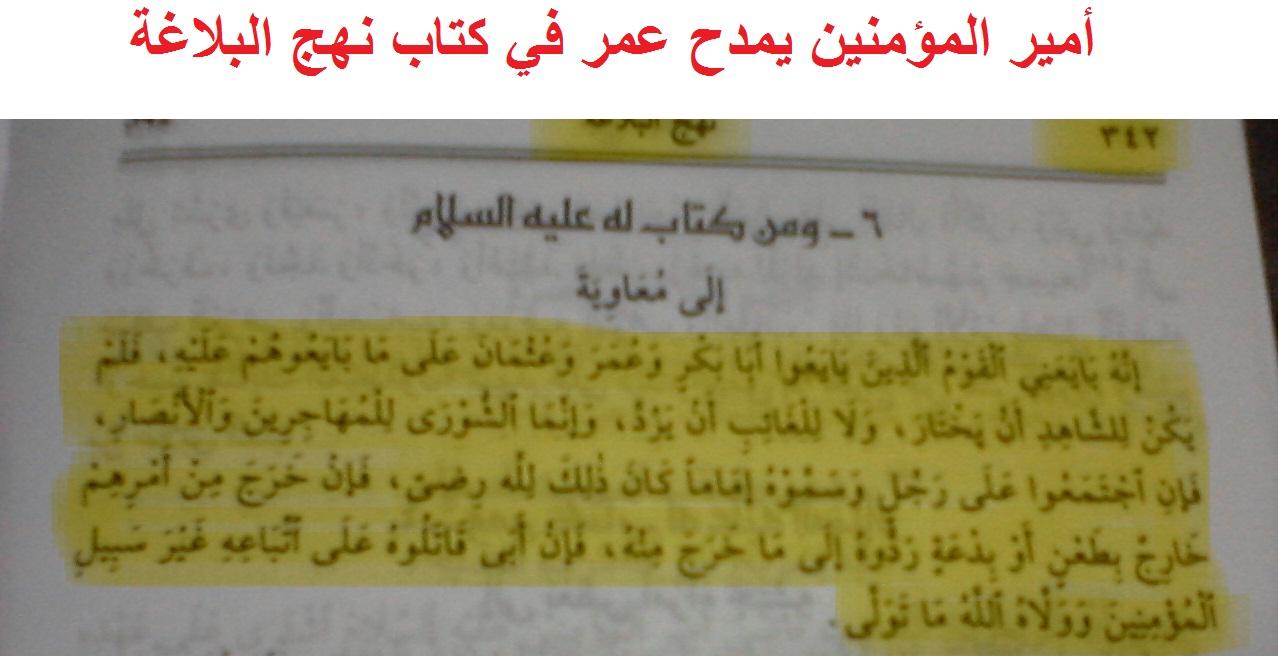 أمير المؤمنين يمدح عمر في كتاب نهج البلاغة
٣٤٢ نهج البلاغة
٦ ـ ومن كتاب له عليه السلام
إِلَى مُعَاوِيَةَ
إِنَّهُ بَايَعَنِي ٱلْقَوْمُ ٱلَّذِينَ بَايَعُوا أَبَا بَكْرٍ وَعُمَرَ وَعُثْمَانَ عَلَى مَا بَايَعُوهُمْ عَلَيْهِ، فَلَمْ
يَكُنْ لِلشَّاهِدِ أَنْ يَخْتَارَ، وَلَا لِلْغَائِبِ أَنْ يَرُدَّ، وَإِنَّمَا ٱلشُّورَى لِلْمُهَاجِرِينَ وَٱلْأَنْصَارِ،
فَإِنِ ٱجْتَمَعُوا عَلَى رَجُلٍ وَسَمَّوْهُ إِمَاماً كَانَ ذٰلِكَ لِلّٰهِ رِضىً، فَإِنْ خَرَجَ مِنْ أَمْرِهِمْ
خَارِجٌ بِطَعْنٍ أَوْ بِدْعَةٍ رَدُّوهُ إِلَى مَا خَرَجَ مِنْهُ، فَإِنْ أَبَى قَاتَلُوهُ عَلَى ٱتِّبَاعِهِ غَيْرَ سَبِيلِ
ٱلْمُؤْمِنِينَ وَوَلَّاهُ ٱللّٰهُ مَا تَوَلَّى.